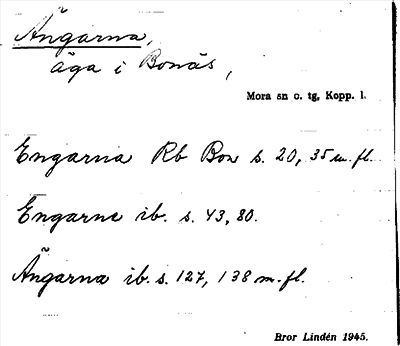 Ängarna,
äga i Bonäs,
Mora sn o. tg, Kopp. l.
Engarna Rb Bon s. 20, 35 m. fl.
Engarne ib. s. 43, 80.
Ängarna ib. s. 127, 138 m. fl.
Bror Lindén 1945.